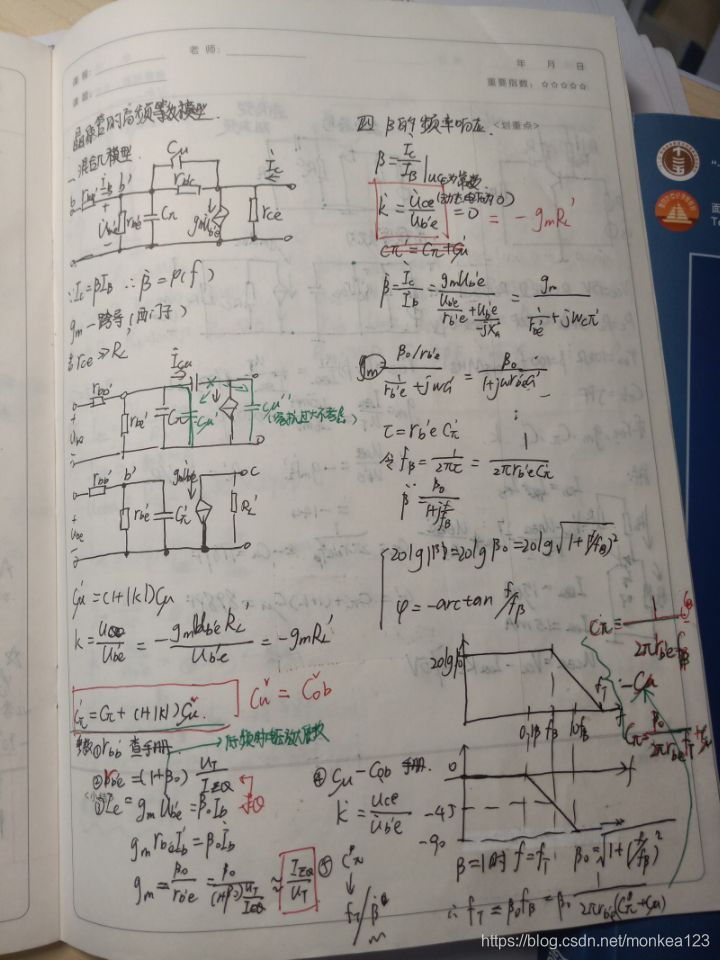 课程:
课题:
老师:
年 月 日
重要指数: ☆☆☆☆☆
晶体管的高频等效模型.
一. 混合π模型.
Cμ
b rbb' İb b' rb'c İc
U̇b'e rb'e Cπ gmU̇b'e rce
∵ İc=βİB ∴ β̇=β(f)
gm—跨导(西门子)
若 rce≫RL'
İCμ
rbb' rb'e Cπ Cμ' Cμ''
(容抗过大不考虑)
Ube
rbb' b' gmU̇b'e c
Ube rb'e Cπ' RL'
Cμ'=(1+|k|)Cμ
k=Uce/Ub'e=-gmUb'eRL'/Ub'e=-gmRL'
Cπ'=Cπ+(1+|k|)Cμ.
Cμ=Cob
参数①rbb' 查手册
②rb'e=(1+β0)UT/IEQ
③İc=gmU̇b'e=β0İb
gm rb'e İb=β0İb
gm=β0/rb'e=β0/((1+β0)UT/IEQ)≈IEQ/UT
④ Cμ-Cob 手册.
k̇=Uce/U̇b'e
⑤ Cπ
↓
fT/β̇
四 β的频率响应. <划重点>
β=İc/İB|UCE为常数.
k̇=U̇ce/U̇b'e=0 =-gmRL'
Cπ'=Cπ+Cμ
β̇=İc/İb=gmUb'e/(Ub'e/rb'e+Ub'e/-jXc)=gm/(1/rb'e+jωCπ')
gm β0/rb'e/(1/rb'e+jωCπ')=β0/(1+jωrb'eCπ')
τ=rb'eCπ'
令 fβ=1/2πτ=1/2πrb'eCπ'
β̇=β0/(1+jf/fβ)
20lg|β|=20lgβ0=20lg√1+(f/fβ)²
φ=-arctan f/fβ
Cπ=1/2πrb'ef -Cμ
20lgβ0
fT f
0.1fβ fβ 10fβ
Cπ=β0/2πrb'efT+Cμ
0 f
-45
-90
β=1时 f=fT β0=√1+(f/fβ)²
∴ fT=β0fβ=β0 1/2πrb'e(Cπ+Cμ)
https://blog.csdn.net/monkea123